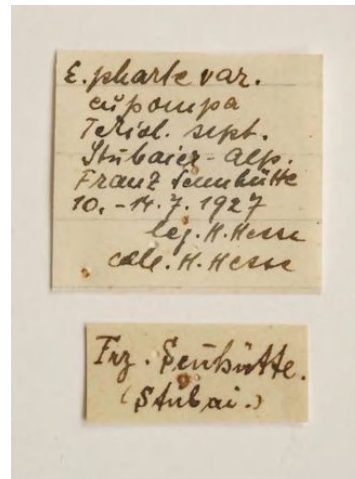 E. pharte var.
eupompa
Teriol. sept.
Stubaier-Alp.
Franz Sennhütte
10.-14.7.1927
leg. H. Hesse
coll. H. Hesse
Frz. Senhütte.
(Stubai.)